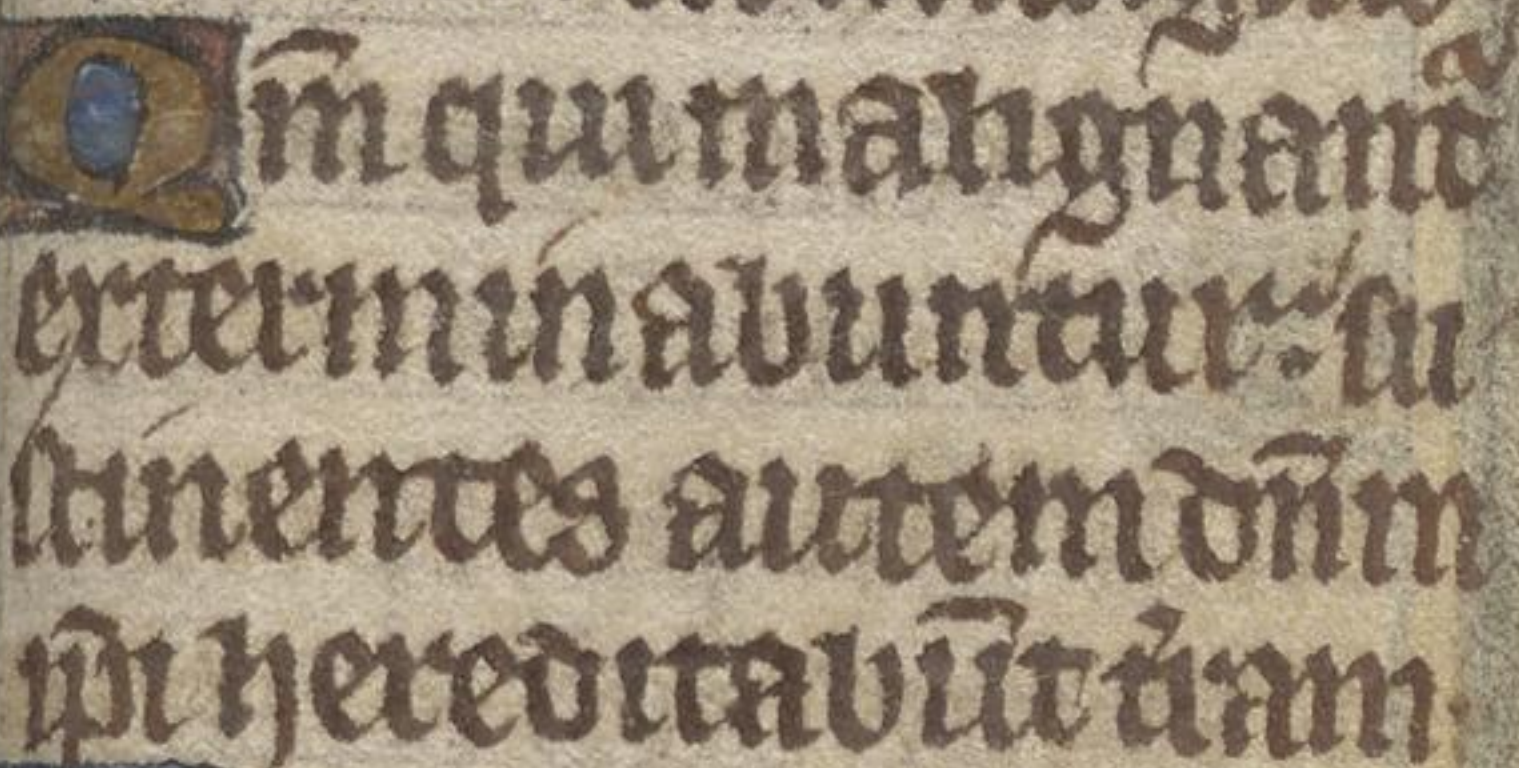 Qm̄ qui malignant᷑
exterminabuntur: su
stinentes autem dn̄m
ip̄i hereditabūt t᷑ram